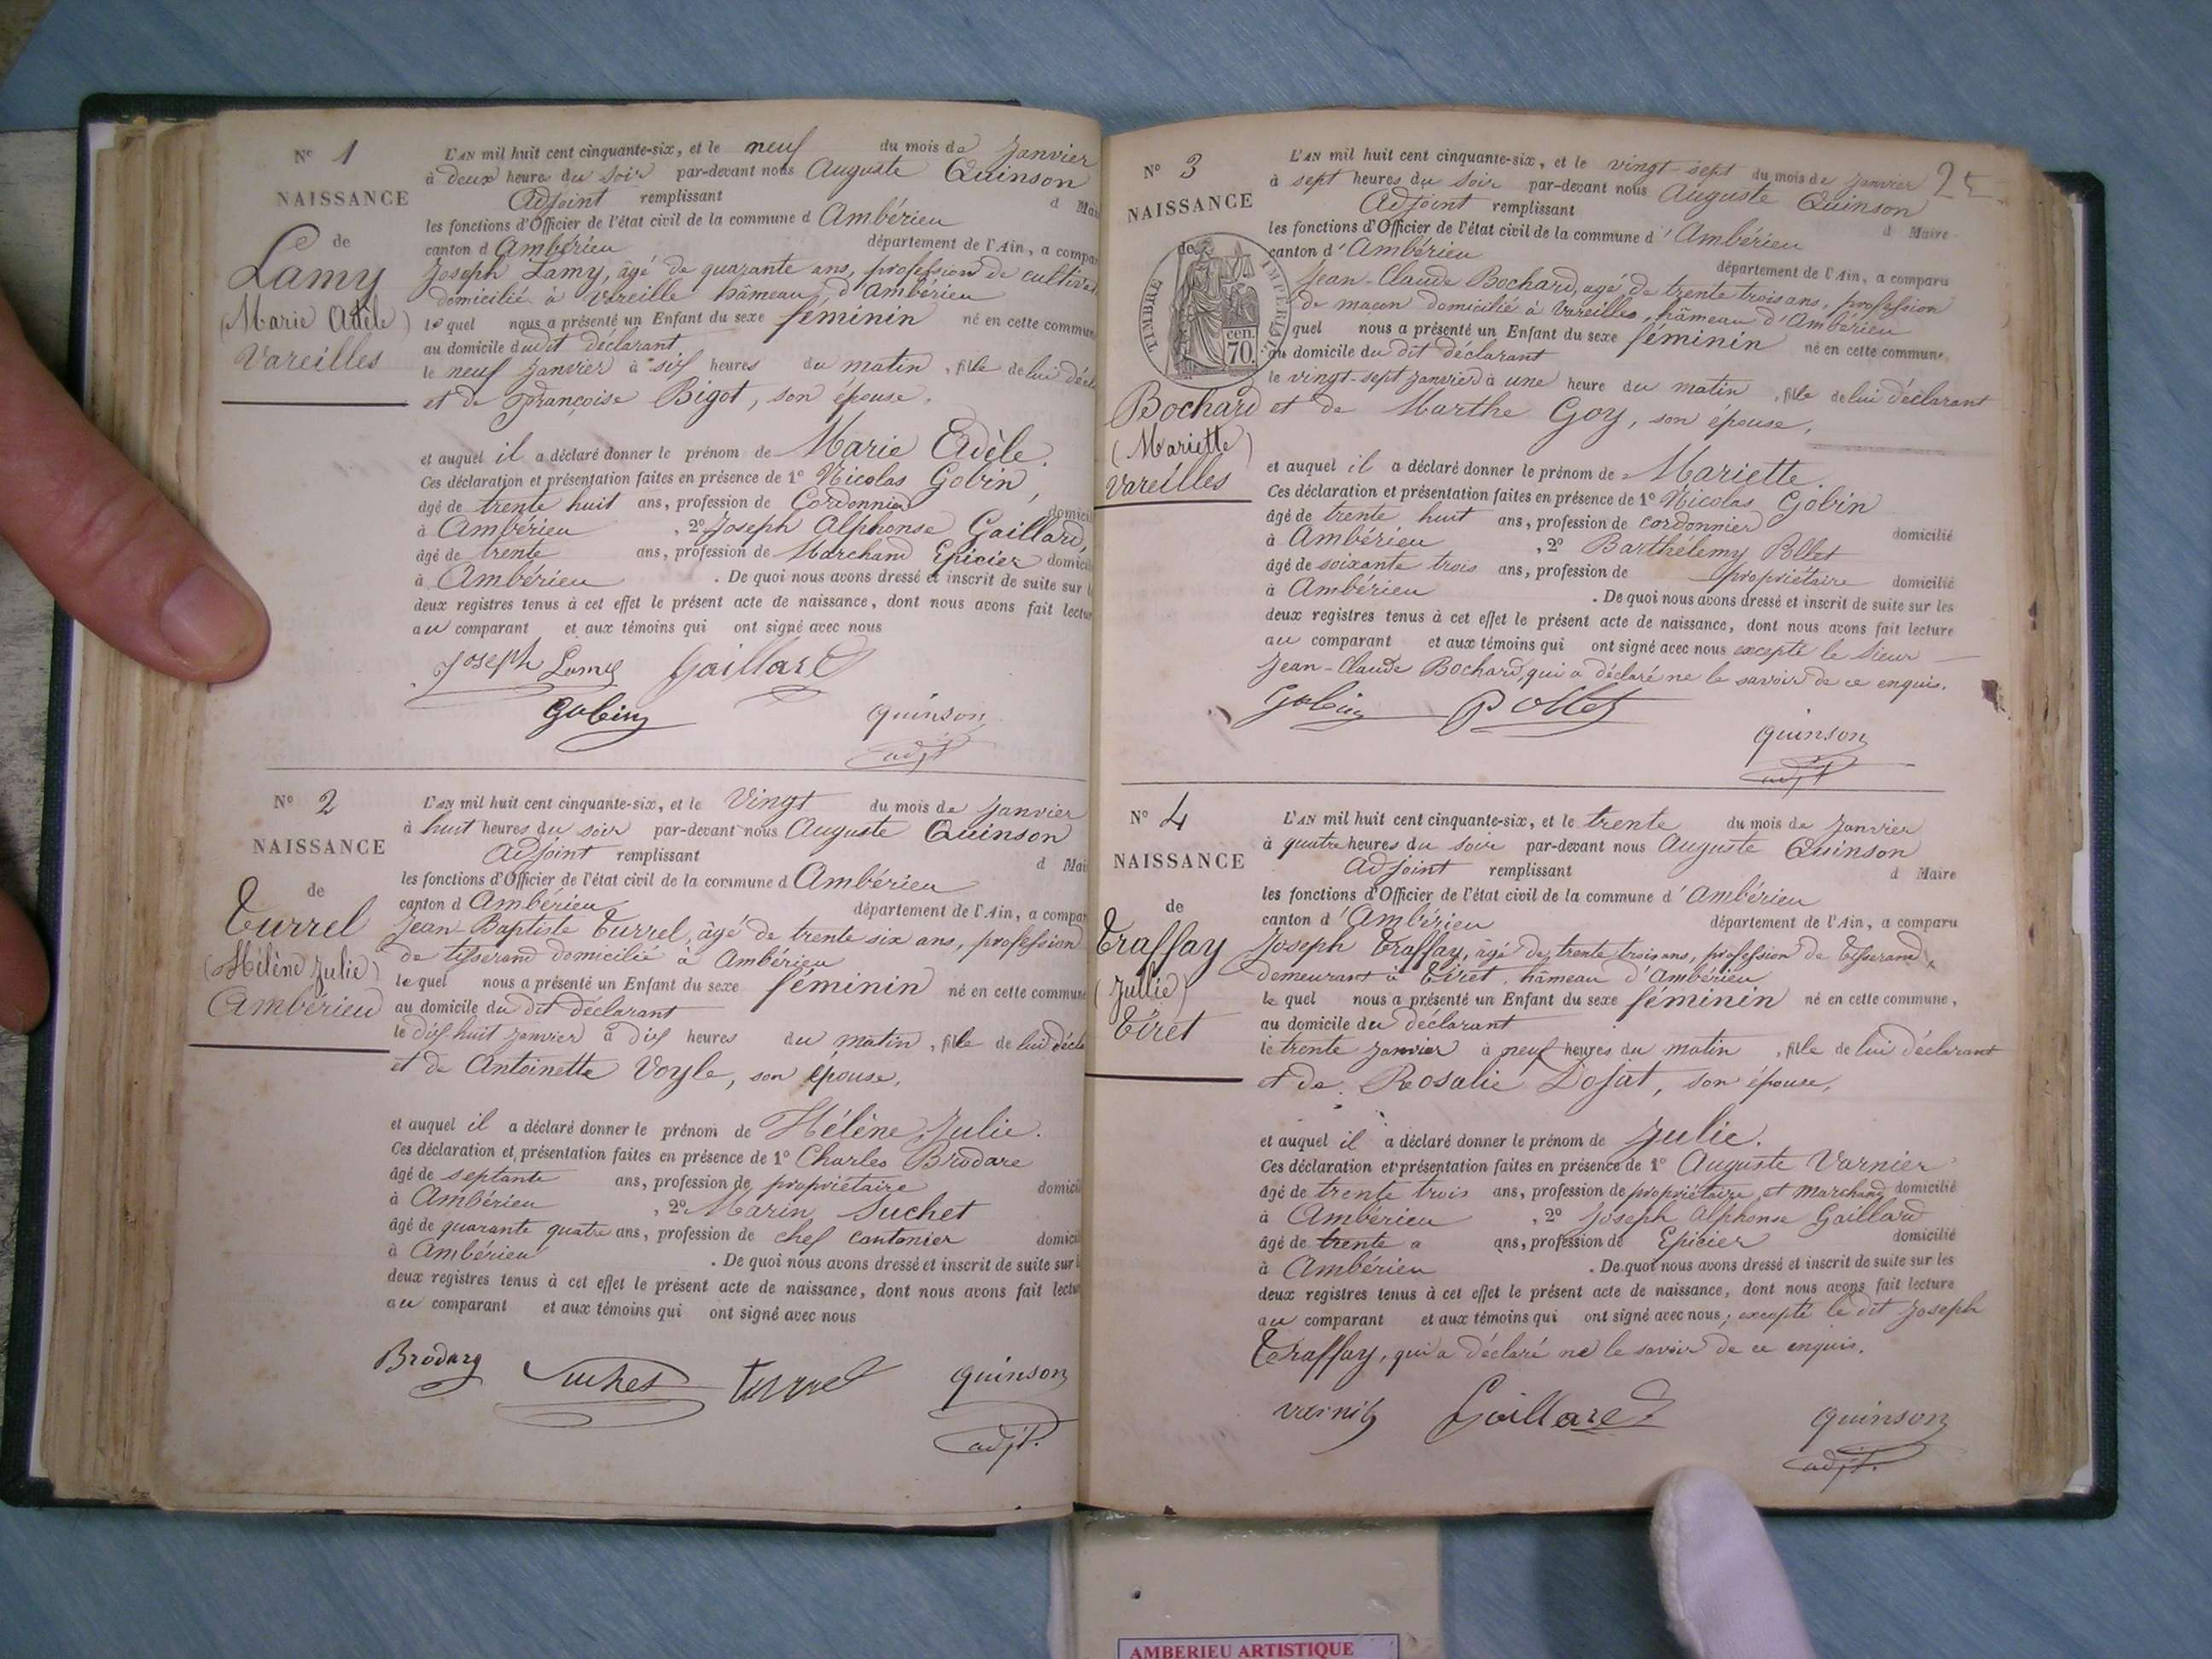 N° 1
NAISSANCE
de
Lamy
(Marie Adèle)
Vareilles
L'AN mil huit cent cinquante-six, et le neuf du mois de Janvier
à deux heures du soir par-devant nous Auguste Quinson
Adjoint remplissant d Mai
les fonctions d'Officier de l'état civil de la commune d Ambérieu
canton d Ambérieu département de l'Ain, a compar
Joseph Lamy, âgé de quarante ans, profession de cultivat
domicilié à Vareille hâmeau d'Ambérieu
lequel nous a présenté un Enfant du sexe féminin né en cette commune
au domicile dudit déclarant
le neuf Janvier à six heures du matin, fille de lui décl
et de Françoise Bigot, son épouse,
et auquel il a déclaré donner le prénom de Marie Adèle.
Ces déclaration et présentation faites en présence de 1° Nicolas Gobin,
âgé de trente huit ans, profession de Cordonnier domicil
à Ambérieu, 2° Joseph Alphonse Gaillard,
âgé de trente ans, profession de Marchand Epicier domicil
à Ambérieu. De quoi nous avons dressé et inscrit de suite sur l
deux registres tenus à cet effet le présent acte de naissance, dont nous avons fait lectur
au comparant et aux témoins qui ont signé avec nous
Joseph Lamy Gaillard
Gobin quinson
adjt
N° 2
NAISSANCE
de
Turrel
(Hélène Julie)
Ambérieu
L'AN mil huit cent cinquante-six, et le Vingt du mois de Janvier
à huit heures du soir par-devant nous Auguste Quinson
Adjoint remplissant d Mai
les fonctions d'Officier de l'état civil de la commune d Ambérieu
canton d Ambérieu département de l'Ain, a compar
Jean-Baptiste Turrel, âgé de trente six ans, profession
de tisserand domicilié à Ambérieu
lequel nous a présenté un Enfant du sexe féminin né en cette commune
au domicile du dit déclarant
le dix huit Janvier à dix heures du matin, fille de lui décla
et de Antoinette Voyle, son épouse,
et auquel il a déclaré donner le prénom de Hélène Julie.
Ces déclaration et présentation faites en présence de 1° Charles Brodare
âgé de septante ans, profession de propriétaire domicil
à Ambérieu, 2° Marin Suchet
âgé de quarante quatre ans, profession de chef cantonier domicil
à Ambérieu. De quoi nous avons dressé et inscrit de suite sur l
deux registres tenus à cet effet le présent acte de naissance, dont nous avons fait lectur
au comparant et aux témoins qui ont signé avec nous
Brodare Suchet Turrel quinson
adjt.
25
N° 3
NAISSANCE
de
TIMBRE IMPERIAL
70 cen.
Bochard
(Mariette)
Vareilles
L'AN mil huit cent cinquante-six, et le vingt-sept du mois de Janvier
à sept heures du soir par-devant nous Auguste Quinson
Adjoint remplissant d Maire
les fonctions d'Officier de l'état civil de la commune d'Ambérieu
canton d'Ambérieu département de l'Ain, a comparu
Jean-Claude Bochard, agé de trente trois ans, profession
de maçon domicilié à Vareilles, hâmeau d'Ambérieu
quel nous a présenté un Enfant du sexe féminin né en cette commune,
au domicile du dit déclarant
le vingt-sept Janvier à une heure du matin, fille de lui déclarant
et de Marthe Goy, son épouse,
et auquel il a déclaré donner le prénom de Mariette.
Ces déclaration et présentation faites en présence de 1° Nicolas Gobin
âgé de trente huit ans, profession de cordonnier domicilié
à Ambérieu, 2° Barthélemy Pollet
âgé de soixante trois ans, profession de propriétaire domicilié
à Ambérieu. De quoi nous avons dressé et inscrit de suite sur les
deux registres tenus à cet effet le présent acte de naissance, dont nous avons fait lecture
au comparant et aux témoins qui ont signé avec nous excepté le Sieur
Jean-Claude Bochard, qui a déclaré ne le savoir de ce enquis.
Gobin Pollet
quinson
adjt
N° 4
NAISSANCE
de
Traffay
(Jullie)
Tiret
L'AN mil huit cent cinquante-six, et le trente du mois de Janvier
à quatre heures du soir par-devant nous Auguste Quinson
Adjoint remplissant d Maire
les fonctions d'Officier de l'état civil de la commune d'Ambérieu
canton d'Ambérieu département de l'Ain, a comparu
Joseph Traffay, âgé de trente trois ans, profession de Tisserand,
demeurant à Tiret, hâmeau d'Ambérieu
le quel nous a présenté un Enfant du sexe féminin né en cette commune,
au domicile du déclarant
le trente Janvier à neuf heures du matin, fille de lui déclarant
et de Rosalie, son épouse,
et auquel il a déclaré donner le prénom de Julie.
Ces déclaration et présentation faites en présence de 1° Auguste Varnier
âgé de trente trois ans, profession de propriétaire, et marchand domicilié
à Ambérieu, 2° Joseph Alphonse Gaillard
âgé de trente a ans, profession de Epicier domicilié
à Ambérieu. De quoi nous avons dressé et inscrit de suite sur les
deux registres tenus à cet effet le présent acte de naissance, dont nous avons fait lecture
au comparant et aux témoins qui ont signé avec nous; excepté le dit Joseph
Traffay, qui a déclaré ne le savoir de ce enquis.
Varnier Gaillard quinson
adjt.
AMBERIEU ARTISTIQUE